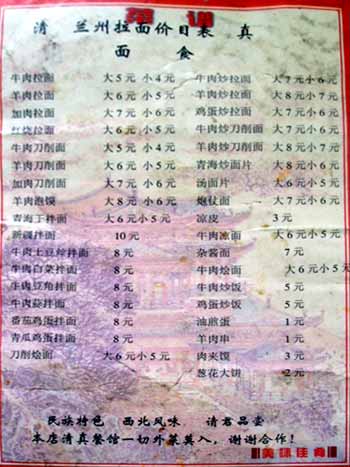 清 兰州拉面价目表 真
面 食
牛肉拉面 大5元 小4元
羊肉拉面 大6元 小5元
加肉拉面 大7元 小6元
红烧拉面 大6元 小5元
牛肉刀削面 大5元 小4元
羊肉刀削面 大6元 小5元
加肉刀削面 大7元 小6元
羊肉泡馍 大8元 小6元
青海丁拌面 大6元 小5元
新疆拌面 10元
牛肉土豆丝拌面 8元
牛肉白菜拌面 8元
牛肉豆角拌面 8元
牛肉蒜拌面 8元
番茄鸡蛋拌面 8元
青瓜鸡蛋拌面 8元
刀削烩面 大6元 小5元
牛肉炒拉面 大7元 小6元
羊肉炒拉面 大8元 小7元
鸡蛋炒拉面 大7元 小6元
牛肉炒刀削面 大7元 小6元
羊肉炒刀削面 大8元 小7元
青海炒面片 大8元 小6元
汤面片 大6元 小5元
炮仗面 大7元 小6元
凉皮 3元
牛肉凉面 大6元 小5元
杂酱面 7元
牛肉烩面 大6元 小5元
牛肉炒饭 5元
鸡蛋炒饭 5元
油煎蛋 1元
羊肉串 1元
肉夹馍 3元
葱花大饼 2元
民族特色 西北风味 请君品尝
本店清真餐馆一切外菜莫入，谢谢合作！
美味佳肴